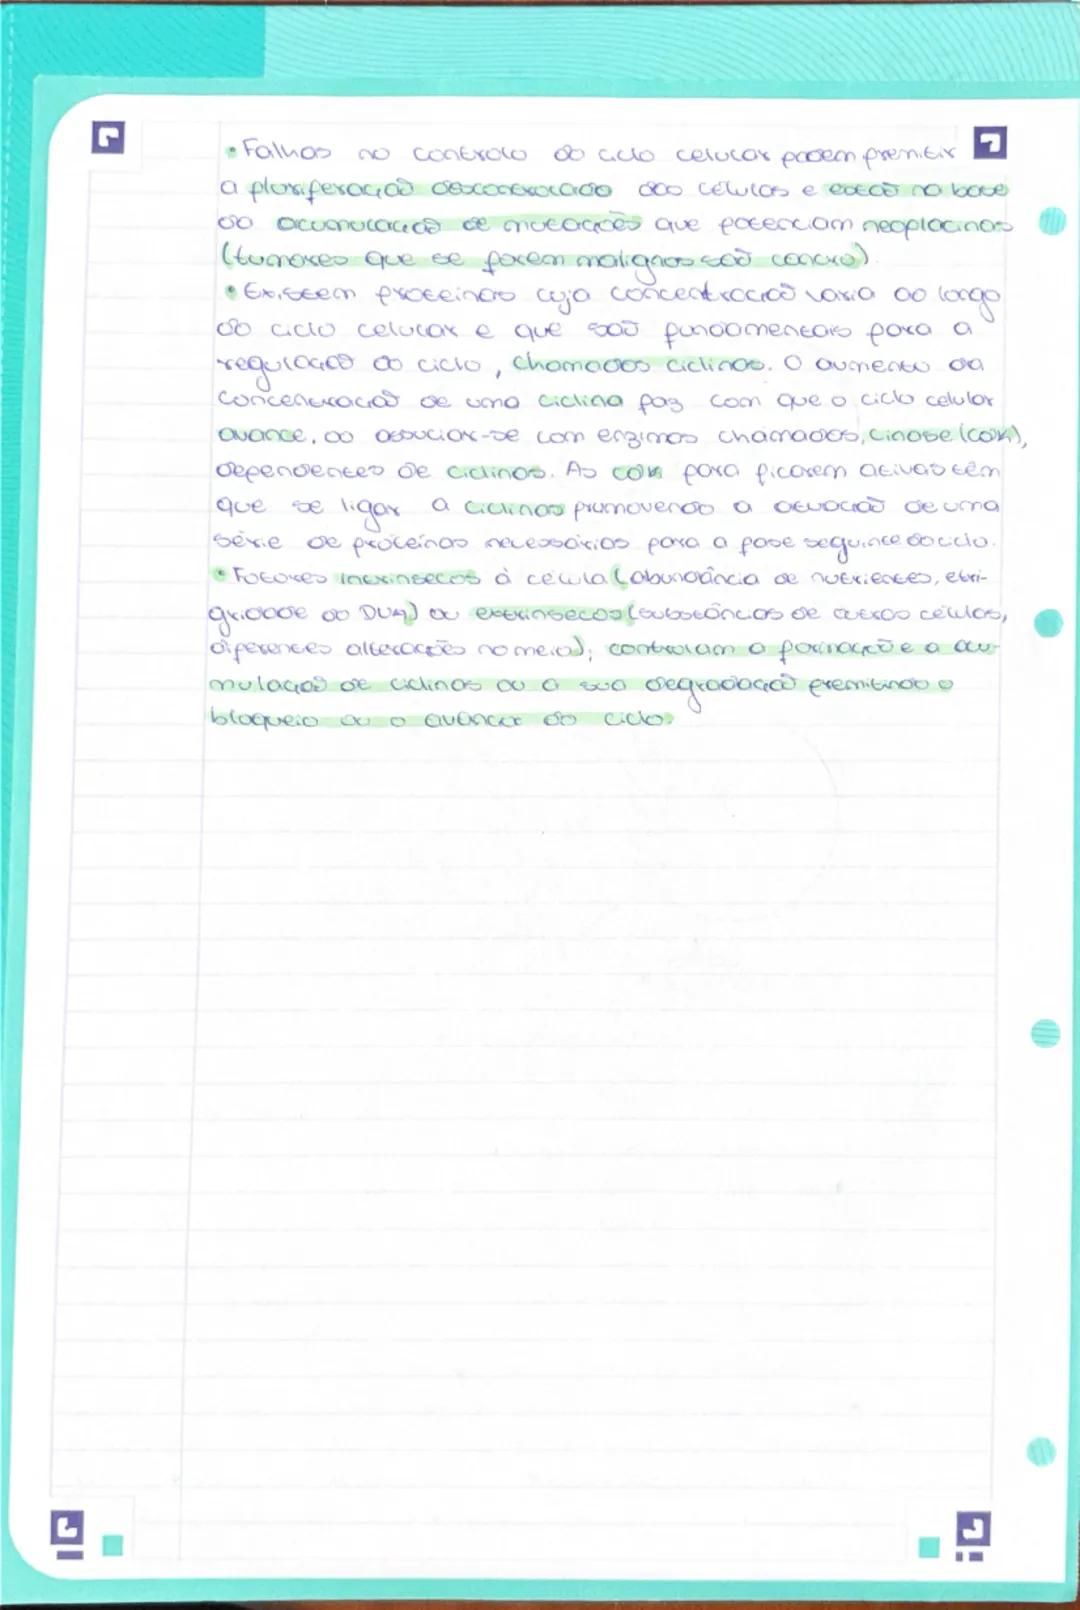 • Falhas no controlo do ciclo celular podem premitir
a pluriferação descontrolada das células e estão na base
da acumulação de mutações que potenciam neoplacinas
(tumores que se forem malignos são cancro).
• Existem proteínas cuja concentração varia ao longo
do ciclo celular e que são fundamentais para a
regulação do ciclo, chamados ciclinas. O aumento da
concentração de uma ciclina faz com que o ciclo celular
avance, ao associar-se com enzimas chamadas, cinase (CDK),
dependentes de ciclinas. As CDK para ficarem ativas têm
que se ligar a ciclinas promovendo a ativação de uma
série de proteínas necessárias para a fase seguinte do ciclo.
• Fatores intrínsecos à célula (abundância de nutrientes, etri-
gridade do DNA) ou extrínsecos (substâncias de outras células,
diferentes alterações no meio); controlam a formação e a acu-
mulação de ciclinas ou a sua degradação premitindo o
bloqueio ou o avançar do ciclo.